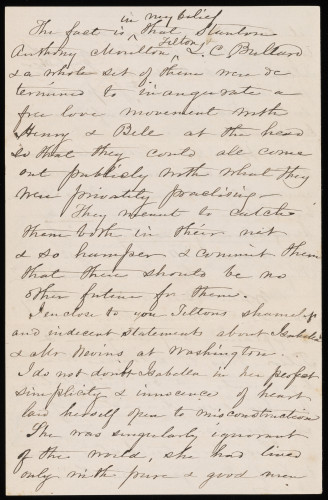 in my belief
The fact is ^ that Stanton
Anthony Moulton ^ Tilton L. C. Bullard
& a whole set of them were de
termined to inaugurate a
free love movement with
Henry & Belle at the head
so that they could all come
out publicly with what they
were privately practising -
They meant to catch
them both in their net
& so hamper & commit them
that there should be no
other future for them.
I enclose to you Tiltons shameful
and indecent statements about Isabella
& Mr Nevins at Washington.
I do not doubt Isabella in her perfect
simplicity & innocence of heart
laid herself open to misconstruction
She was singularly ignorant
of the world, she had lived
only with pure & good men